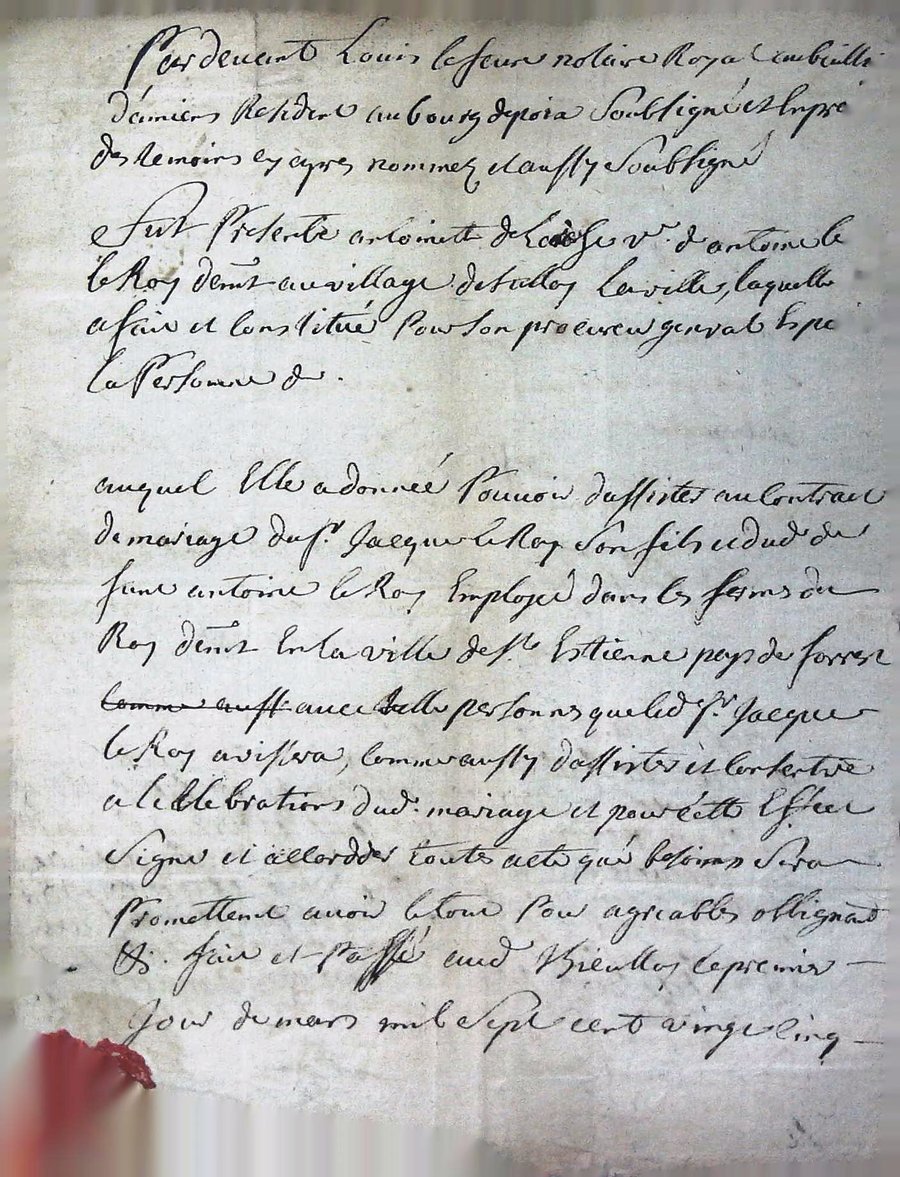 Pardevant Louis lefeure notaire Royal au bailli
d'amiens Resident au bourg depoix Soubsigné et En pré
des temoins cy apres nommez et aussy Soubsigné
Fut Presente antoinette de vᵉ d antoine le
le Roy demt au village de Laville, laquelle
a fait et Constitué Pour Son procureur general Espé
La Personne de .
auquel Elle a donnée Pouuoir dassister au Contract
de mariage du sr Jacque le Roy Son fils et dud de
funt antoine le Roy Employé dans les fermes du
Roy demt En la ville de st Estienne pays de forrest
comme auss auec telle personne que led sr Jacque
le Roy avisera, comme aussy dassister et Consentire
a le Celebrations dud. mariage et pour cette Effect
Signe et accordder toutes acte qué besoins Sera
Promettent auoir le tout Pour agreables obligeant
&. fait et Passé aud le premier
Jour de mars mil Sept cent vingt Cinq